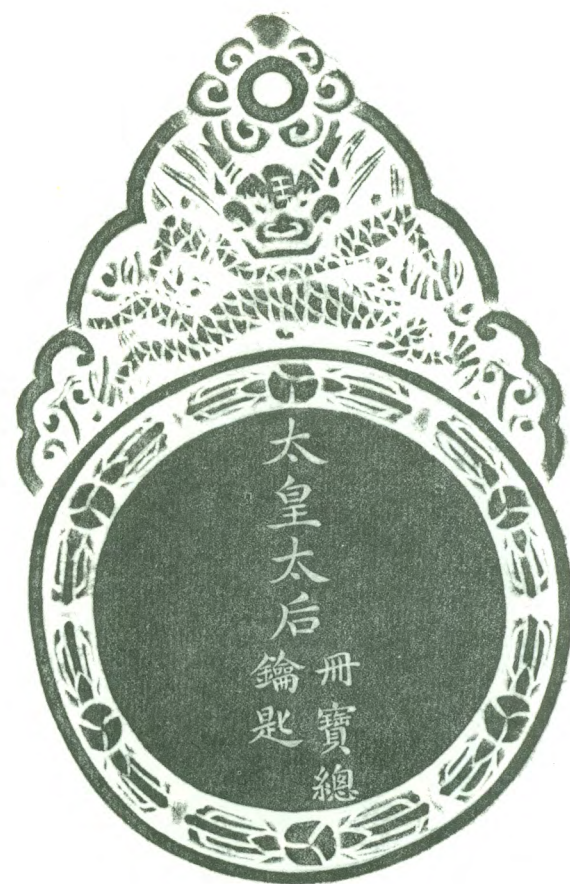 太皇太后
冊寶總
鑰匙